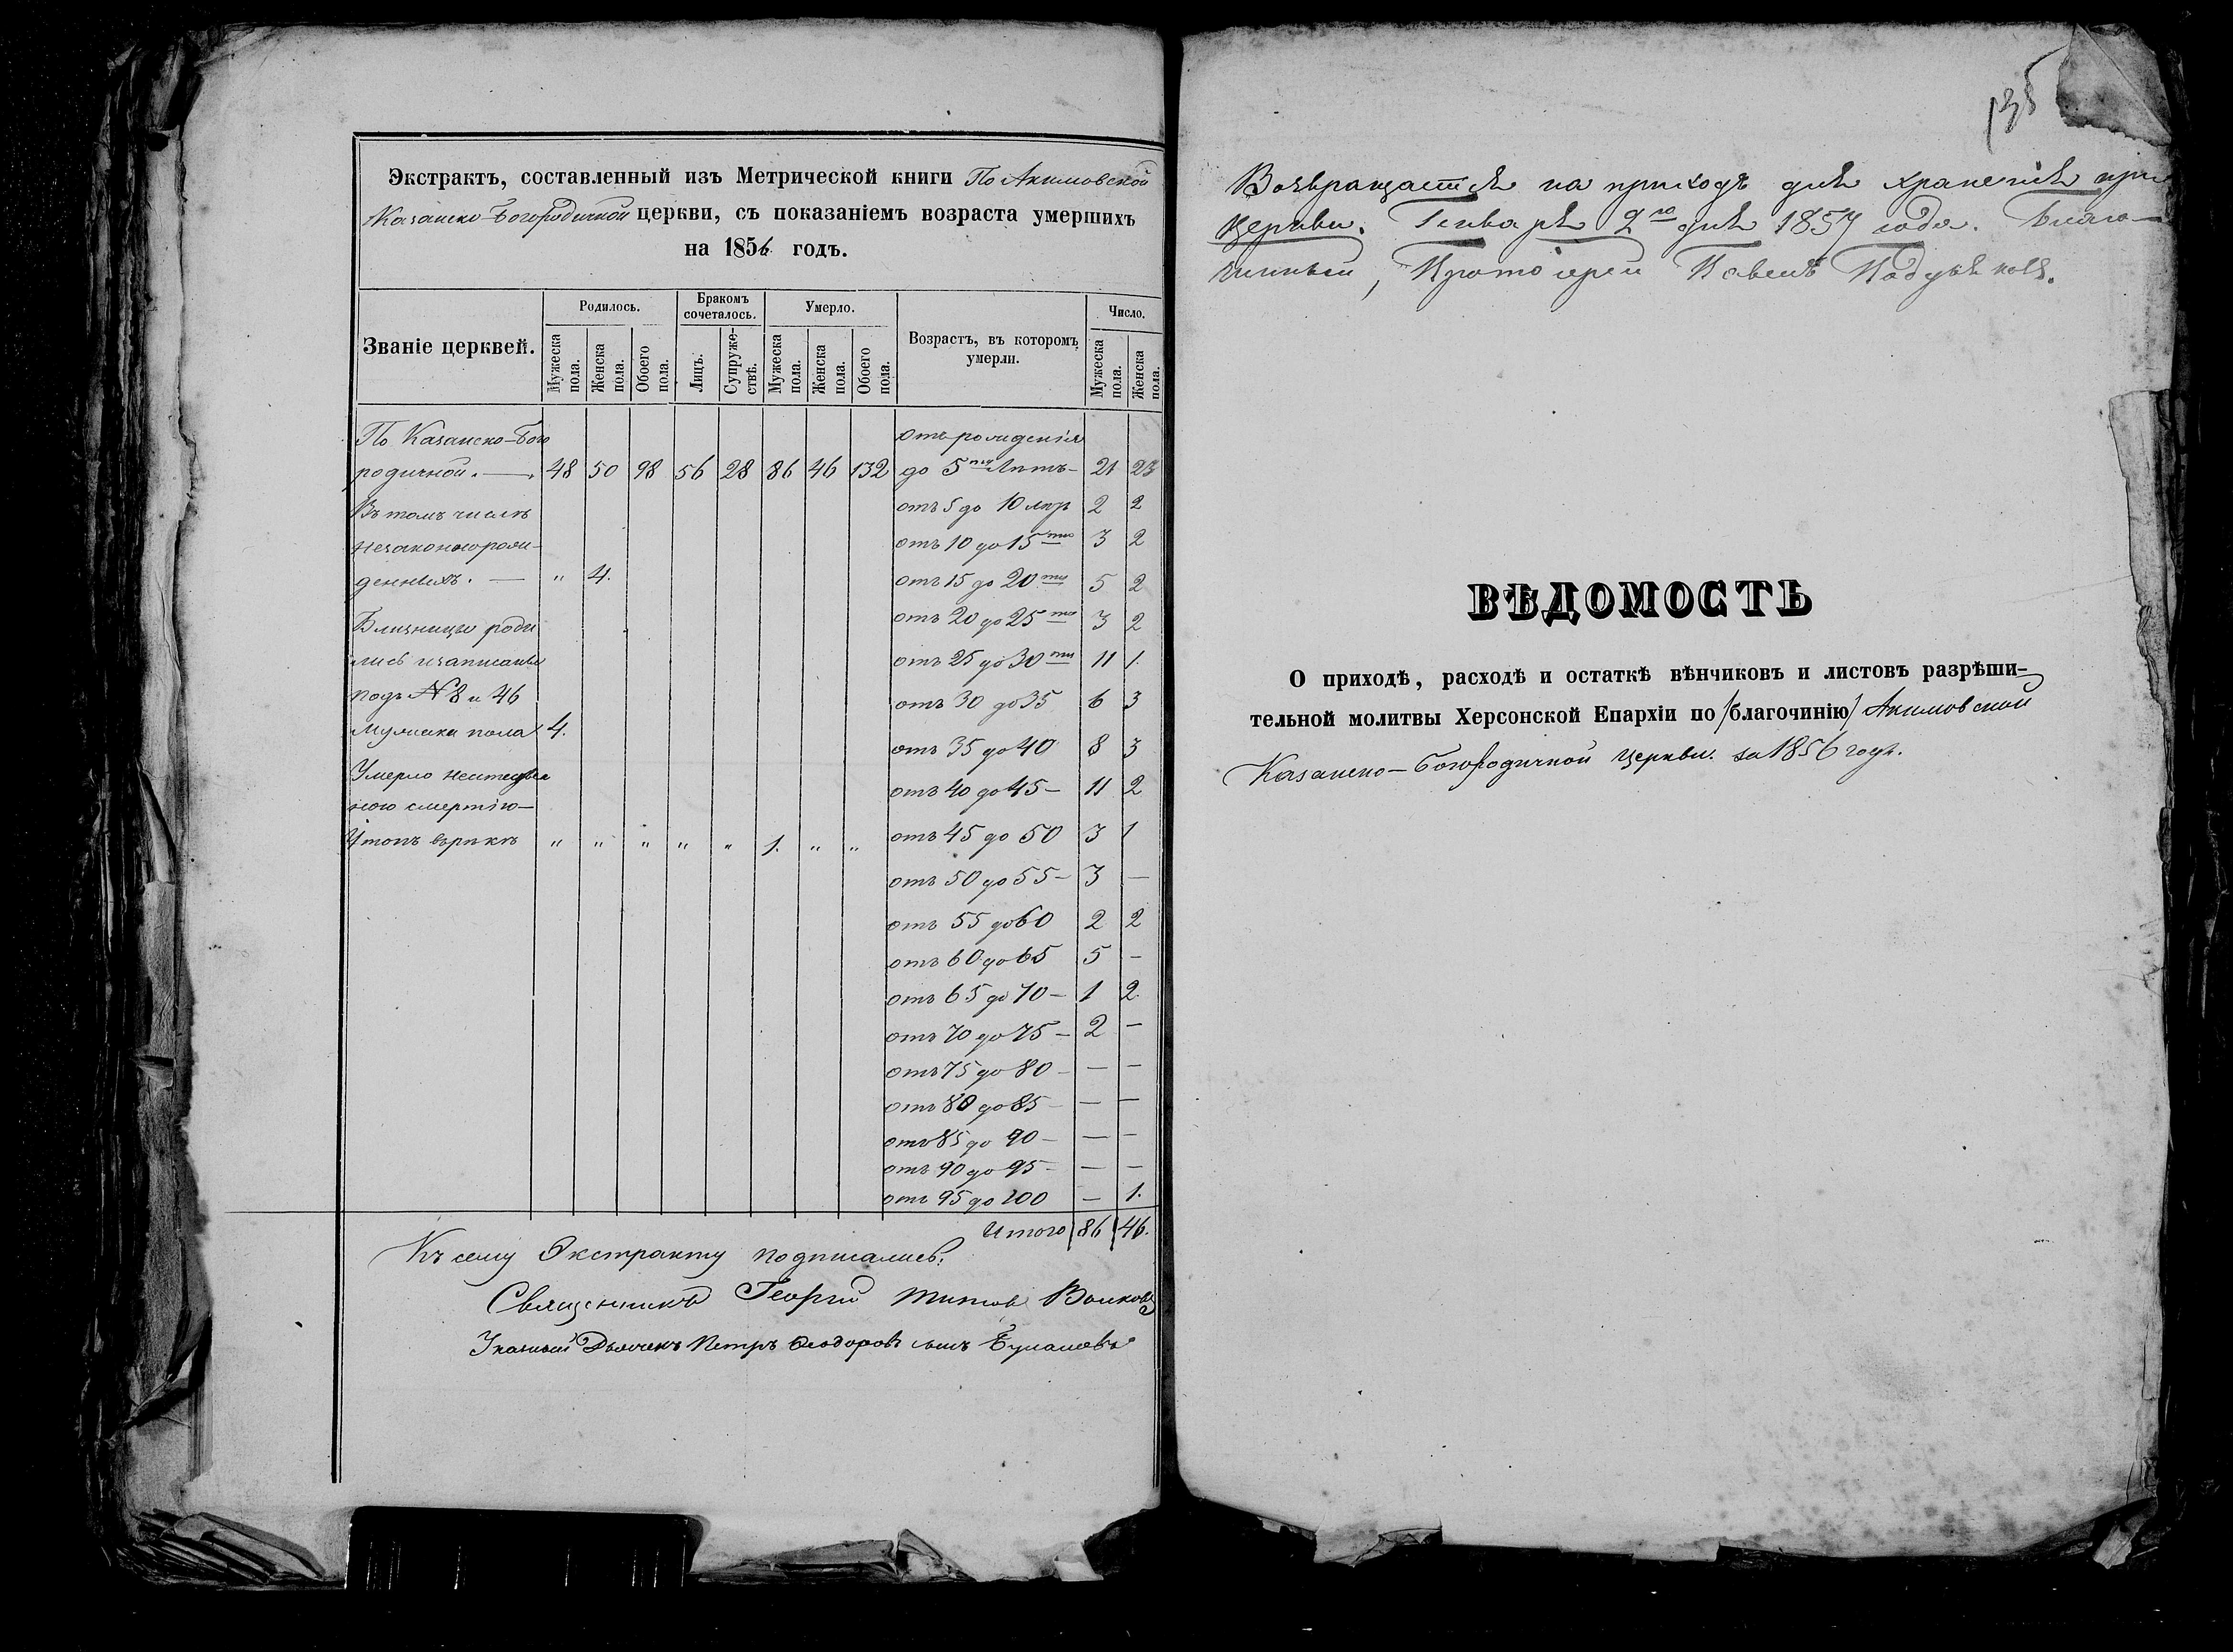 Экстрактъ, составленный изъ Метрической книги По Акимовской
Казанско-Богородичной церкви, съ показаніемъ возраста умершихъ
на 1856 годъ.
Званіе церквей.
Родилось.
Мужеска пола.
Женска пола.
Обоего пола.
Бракомъ сочеталось.
Лицъ.
Супружествъ.
Умерло.
Мужеска пола.
Женска пола.
Обоего пола.
Возрастъ, въ которомъ умерли.
Число.
Мужеска пола.
Женска пола.
По Казанско-Бого
родичной. — 48 50 98 56 28 86 46 132
Въ томъ числѣ
незаконнорож-
денныхъ. — " 4.
Близнецы роди
лись и записаны
подъ № 8 и 46
Мужеска пола 4.
Умерло неестестве
ною смертію—
Утопъ въ рѣкѣ " " " " " 1. " "
Отъ рожденія
до 5ти Лѣтъ— 21 23
отъ 5 до 10 лѣтъ 2 2
отъ 10 до 15ти 3 2
отъ 15 до 20ти 5 2
отъ 20 до 25ти 3 2
отъ 25 до 30ти 11 1.
отъ 30 до 35 6 3
отъ 35 до 40 8 3
отъ 40 до 45— 11 2
отъ 45 до 50 3 1
отъ 50 до 55— 3 —
отъ 55 до 60 2 2
отъ 60 до 65 5 —
отъ 65 до 70— 1 2
отъ 70 до 75— 2 —
отъ 75 до 80— — —
отъ 80 до 85— — —
отъ 85 до 90— — —
отъ 90 до 95— — —
отъ 95 до 100 — 1.
Итого 86 46.
Къ сему Экстракту подписались:
Священникъ Георгій Титовъ Волковъ
Указный Дьячекъ Петръ Ѳеодоровъ сынъ
135
Возвращается на приходъ для храненія при
церкви. Генваря 2го дня 1857 года. Благо-
чинный, Протоіерей Павелъ
ВѢДОМОСТЬ
О приходѣ, расходѣ и остаткѣ вѣнчиковъ и листовъ разрѣши-
тельной молитвы Херсонской Епархіи по /благочинію/ Акимовской
Казанско-Богородичной церкви. за 1856 годъ.